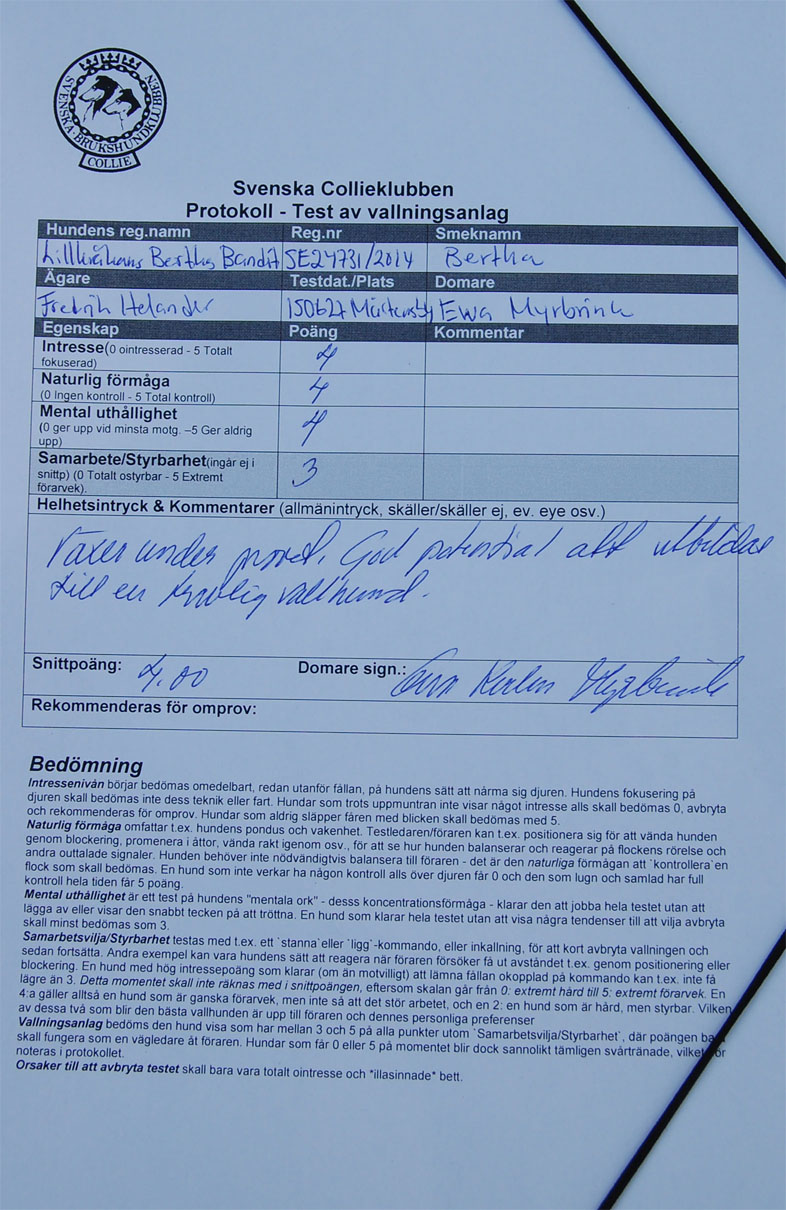 SVENSKA BRUKSHUNDKLUBBEN
COLLIE
Svenska Collieklubben
Protokoll - Test av vallningsanlag
Hundens reg.namn Reg.nr Smeknamn
Berthas Bandit SE24731/2014 Bertha
Ägare Testdat./Plats Domare
Fredrik Helander 150627 Mårtensby Ewa Myrbrink
Egenskap Poäng Kommentar
Intresse(0 ointresserad - 5 Totalt 4
fokuserad)
Naturlig förmåga 4
(0 Ingen kontroll - 5 Total kontroll)
Mental uthållighet 4
(0 ger upp vid minsta motg. –5 Ger aldrig
upp)
Samarbete/Styrbarhet(ingår ej i 3
snittp) (0 Totalt ostyrbar - 5 Extremt
förarvek).
Helhetsintryck & Kommentarer (allmänintryck, skäller/skäller ej, ev. eye osv.)
Växer under provet. God potential att utbildas
till en trevlig vallhund.
Snittpoäng: 4,00 Domare sign.: Ewa Myrbrink
Rekommenderas för omprov:
Bedömning
Intressenivån börjar bedömas omedelbart, redan utanför fållan, på hundens sätt att närma sig djuren. Hundens fokusering på
djuren skall bedömas inte dess teknik eller fart. Hundar som trots uppmuntran inte visar något intresse alls skall bedömas 0, avbryta
och rekommenderas för omprov. Hundar som aldrig släpper fåren med blicken skall bedömas med 5.
Naturlig förmåga omfattar t.ex. hundens pondus och vakenhet. Testledaren/föraren kan t.ex. positionera sig för att vända hunden
genom blockering, promenera i åttor, vända rakt igenom osv., för att se hur hunden balanserar och reagerar på flockens rörelse och
andra outtalade signaler. Hunden behöver inte nödvändigtvis balansera till föraren - det är den naturliga förmågan att `kontrollera´en
flock som skall bedömas. En hund som inte verkar ha någon kontroll alls över djuren får 0 och den som lugn och samlad har full
kontroll hela tiden får 5 poäng.
Mental uthållighet är ett test på hundens "mentala ork" - desss koncentrationsförmåga - klarar den att jobba hela testet utan att
lägga av eller visar den snabbt tecken på att tröttna. En hund som klarar hela testet utan att visa några tendenser till att vilja avbryta
skall minst bedömas som 3.
Samarbetsvilja/Styrbarhet testas med t.ex. ett `stanna´eller `ligg´-kommando, eller inkallning, för att kort avbryta vallningen och
sedan fortsätta. Andra exempel kan vara hundens sätt att reagera när föraren försöker få ut avståndet t.ex. genom positionering eller
blockering. En hund med hög intressepoäng som klarar (om än motvilligt) att lämna fållan okopplad på kommando kan t.ex. inte få
lägre än 3. Detta momentet skall inte räknas med i snittpoängen, eftersom skalan går från 0: extremt hård till 5: extremt förarvek. En
4:a gäller alltså en hund som är ganska förarvek, men inte så att det stör arbetet, och en 2: en hund som är hård, men styrbar. Vilken
av dessa två som blir den bästa vallhunden är upp till föraren och dennes personliga preferenser
Vallningsanlag bedöms den hund visa som har mellan 3 och 5 på alla punkter utom `Samarbetsvilja/Styrbarhet´, där poängen bara
skall fungera som en vägledare åt föraren. Hundar som får 0 eller 5 på momentet blir dock sannolikt tämligen svårtränade, vilket bör
noteras i protokollet.
Orsaker till att avbryta testet skall bara vara totalt ointresse och *illasinnade* bett.